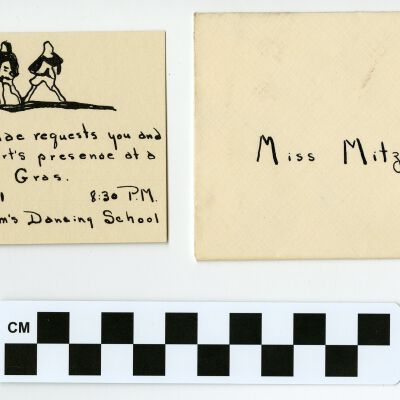 requests you and
presense at a
Gras.
8:30 P.M.
Dancing School
Miss
CM